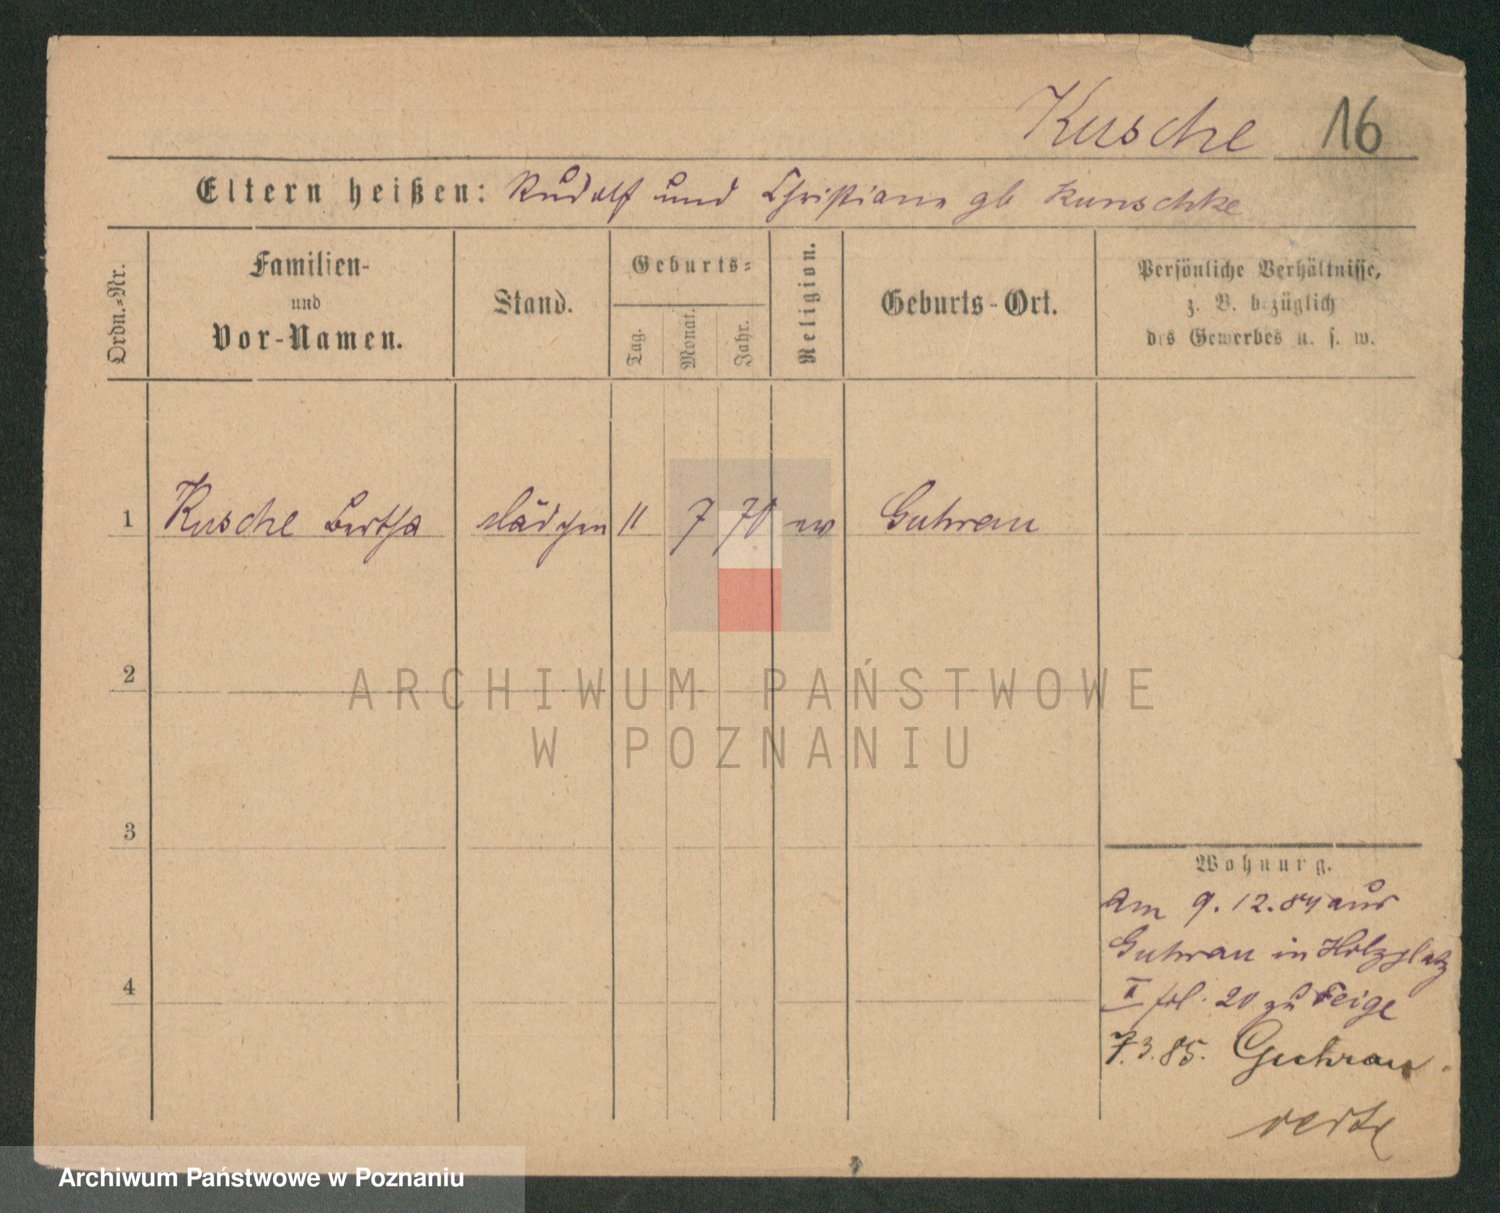 Kusche 16
Eltern heißen: Rudolf und Christiane gb Kunschke
Ordn.-Nr.
Familien-
und
Vor-Namen.
Stand.
Geburts-
Tag.
Monat.
Jahr.
Religion.
Geburts-Ort.
Persönliche Verhältnisse,
z. B. bezüglich
des Gewerbes u. s. w.
1 Kusche Bertha Mädchen 11 7 70 ev Guhrau
2
ARCHIWUM PAŃSTWOWE
W POZNANIU
3
Wohnung.
Am 9.12.84 aus
Guhrau in Holzplatz
4
I fol. 20 zu Feige
7.3.85. Guhrau.
verte
Archiwum Państwowe w Poznaniu